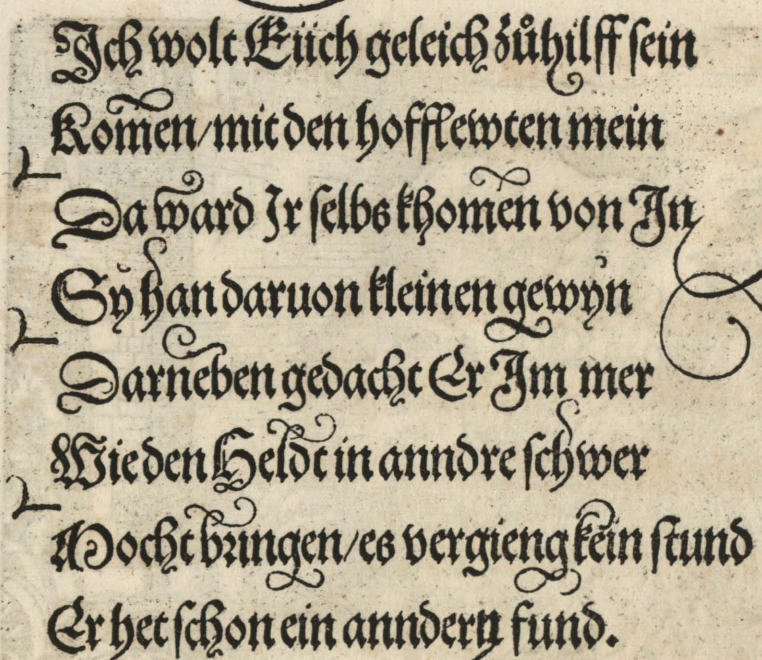 Ich wolt Eüch geleich zůhilff sein
Komen/mit den hofflewten mein
Da ward Ir selbs khomen von In
Sy han daruon kleinen gewyn
Darneben gedacht Er Im mer
Wie den Heldt in anndre schwer
Mocht bringen/es vergieng kein stund
Er het schon ein anndern fund.